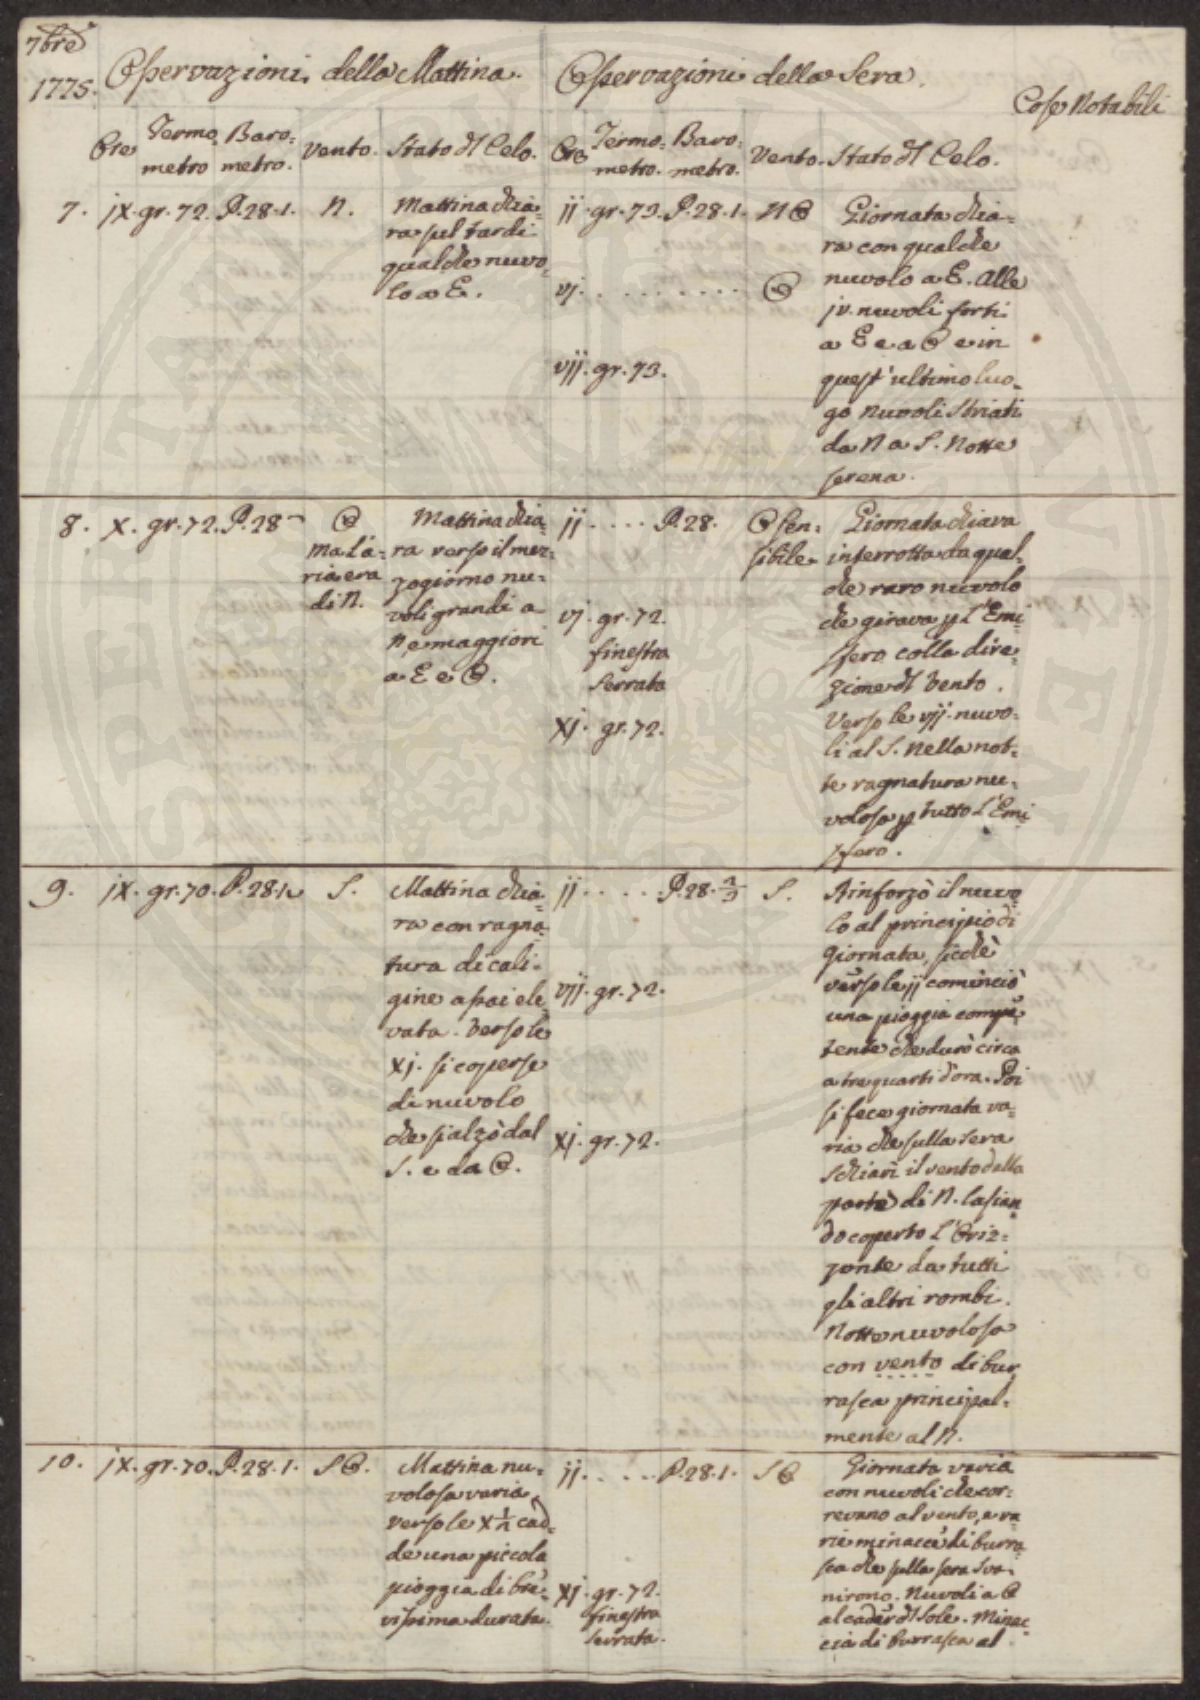 7bre
1775.
Osservazioni della Mattina.
Osservazioni della Sera.
Cose Notabili
Ore Termo- Baro-
metro metro.
Vento. Stato dl Celo.
Ore Termo- Baro-
metro. metro.
Vento. Stato dl Celo.
7. jx. gr. 72. P. 28.1. N.
Mattina chia-
ra sul tardi
qualche nuvo-
lo a E.
ij. gr. 73. P. 28.1. N O
vj. . . . . . . . . . O
vij. gr. 73.
Giornata chia-
ra con qualche
nuvolo a E. Alle
jv. nuvoli forti
a E e a O e in
quest' ultimo luo-
go nuvoli striati
da N a S. Notte
serena.
8. X. gr. 72. P. 28 O
ma l'a-
ria era
di N.
Mattina chia-
ra verso il mez-
zogiorno nu-
voli grandi a
N, e maggiori
a E e O.
ij. . . . . P. 28. O sen-
sibile
vj. gr. 72.
finestra
serrata
xj. gr. 72.
Giornata chiara
interrotta da qual-
che raro nuvolo
che girava p l'Emi-
sfero colla dire-
zione dl vento.
Verso le vij. nuvo-
li al S. Nella not-
te ragnatura nu-
volosa p tutto l'Emi
sfero.
9. jx. gr. 70. P. 28.1. S.
Mattina chia-
ra con ragna-
tura di cali-
gine assai ele
vata. Verso le
xj. si coperse
di nuvolo
che s'alzò dal
S. e da O.
ij. . . . . P. 28. 2/3 S.
vij. gr. 72.
xj. gr. 72.
Rinforzò il nuvo-
lo al principio di
Giornata, sicchè
verso le ij cominciò
una pioggia compe-
tente che durò circa
a tre quarti d'ora. Poi
si fece giornata va-
ria che sulla sera
schiarì il vento dalla
parte di N. lascian
do coperto l'Oriz-
zonte da tutti
gli altri rombi.
Notte nuvolosa
con vento di bur
rasca principal-
mente al N.
10. jx. gr. 70. P. 28.1. S O.
Mattina nu-
volosa varia
verso le x 1/2 cad-
de una piccola
pioggia di bre-
vissima durata.
ij. . . . . P. 28.1. S O
xj. gr. 72.
finestra
serrata.
Giornata varia
con nuvoli che cor-
revano al vento, e va
rie minacce di burra
sca che sulla sera sva-
nirono. Nuvoli a O
al cader dl Sole. Minac-
cia di Burrasca al